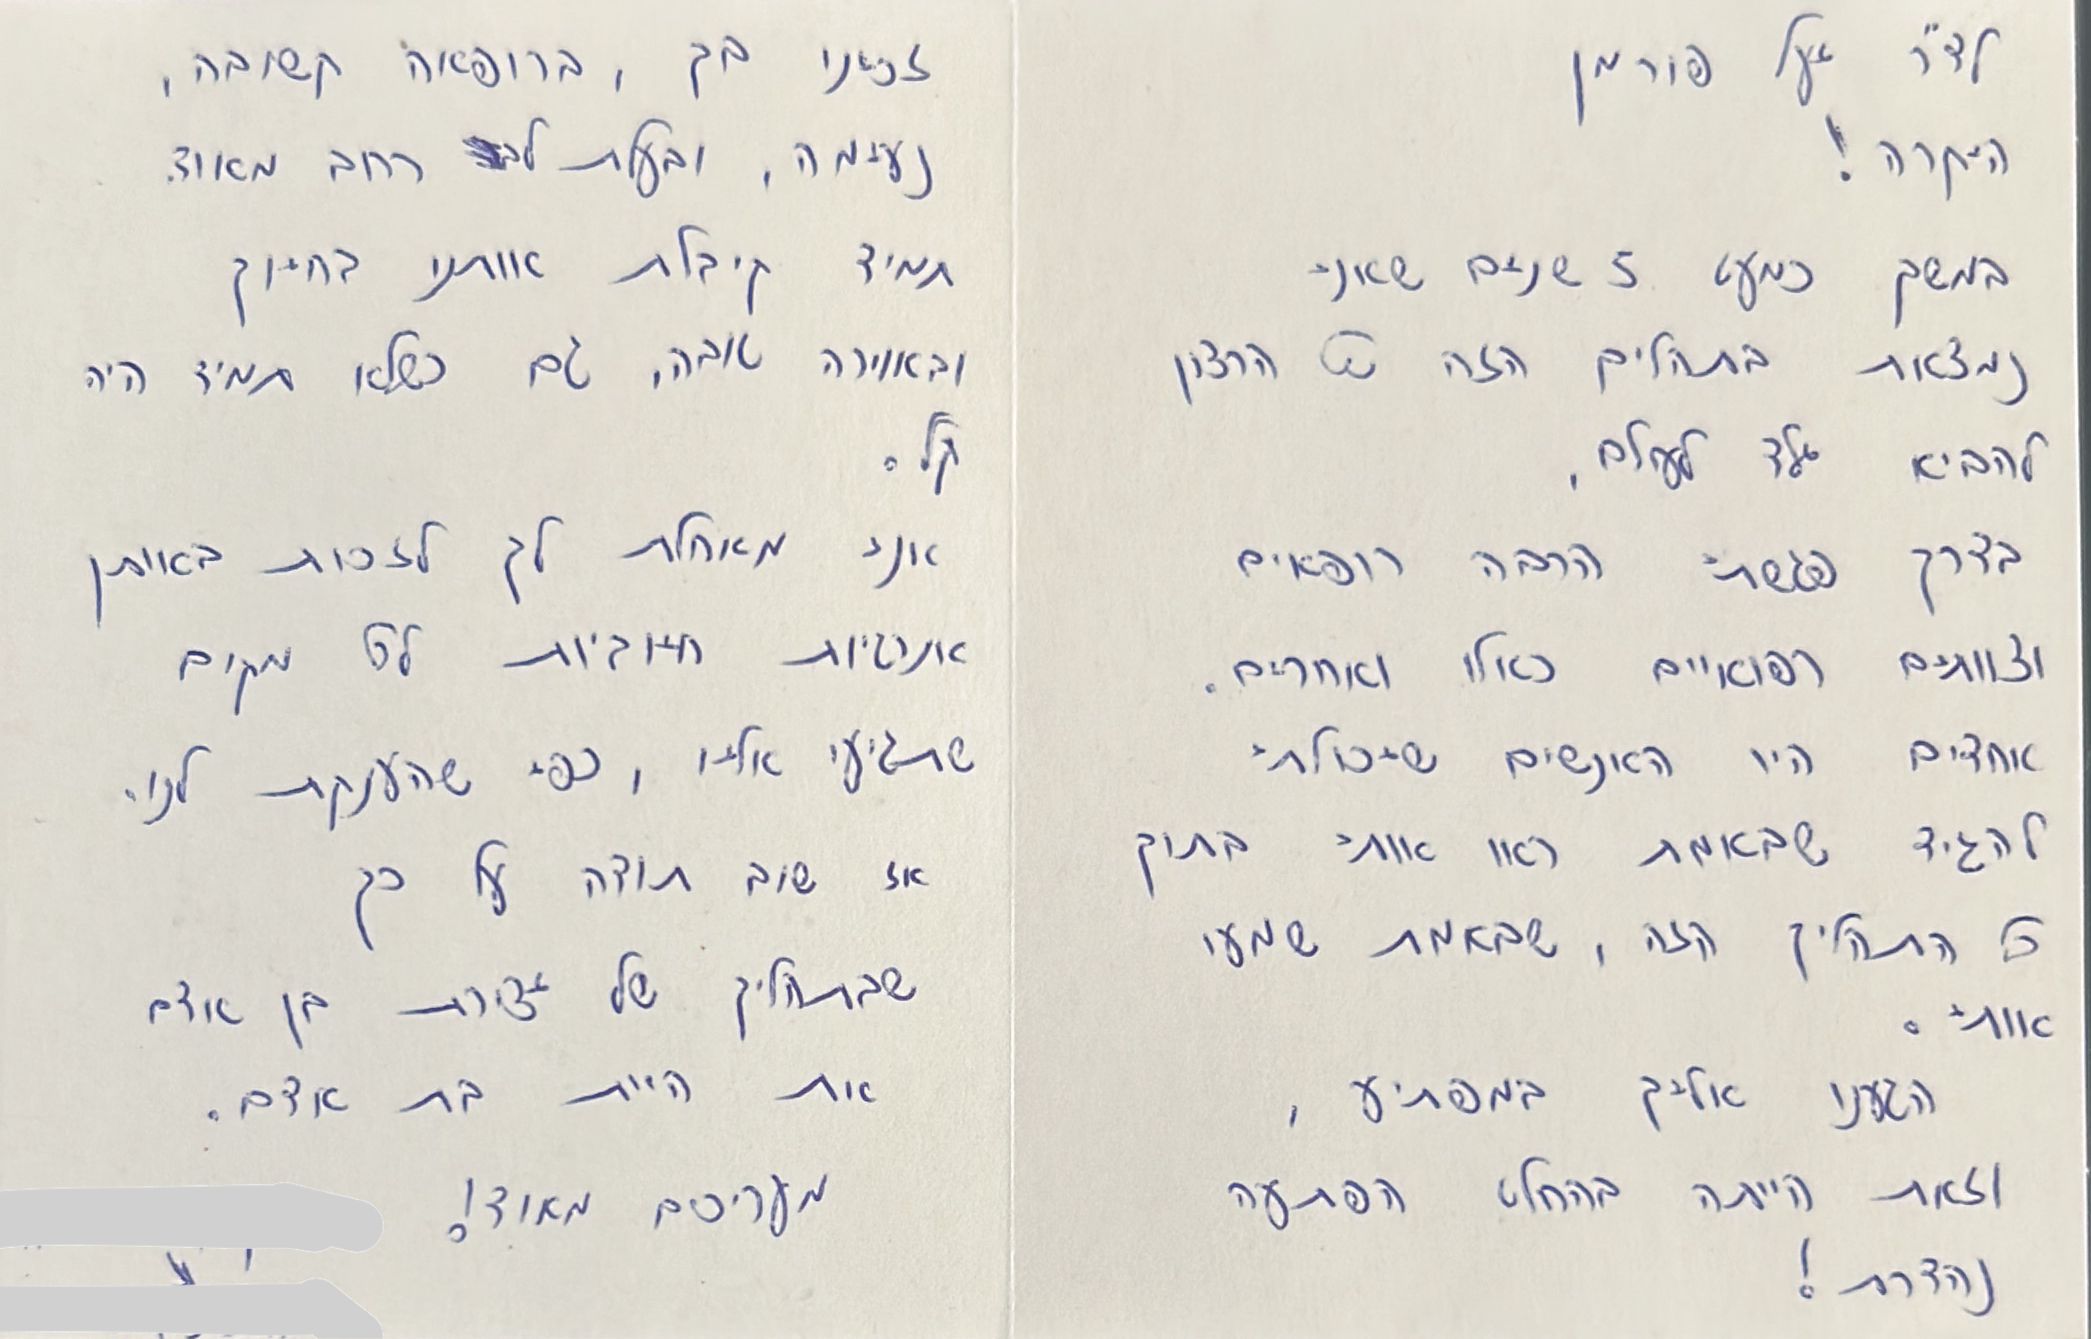 לד"ר יעל פורמן
היקרה!
במשך כמעט 5 שנים שאני
נמצאת בתהליך הזה של הרצון
להביא ילד לעולם,
בדרך פגשתי הרבה רופאים
וצוותים רפואיים כאלו ואחרים.
אחדים היו האנשים שיכולתי
להגיד שבאמת ראו אותי בתוך
כל התהליך הזה, שבאמת שמעו
אותי.
הגענו אלייך במפתיע,
וזאת הייתה בהחלט הפתעה
נהדרת!
זכינו בך, ברופאה קשובה,
נעימה, ובעלת לב רחב מאוד.
תמיד קיבלת אותנו בחיוך
ובאווירה טובה, גם כשלא תמיד היה
קל.
אני מאחלת לך לזכות באותן
אנרגיות חיוביות לכל מקום
שתגיעי אליו, כפי שהענקת לנו.
אז שוב תודה על כך
שבתהליך של יצירת בן אדם
את היית בת אדם.
מעריכים מאוד!